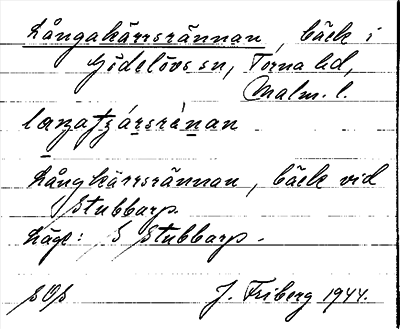 Långakärrsrännan, bäck i
Gödelövs sn, Torna hd,
Malm. l.
Långkärrsrännan, bäck vid
Stubbarp.
Läge: S Stubbarp.
J. Friberg 1944.